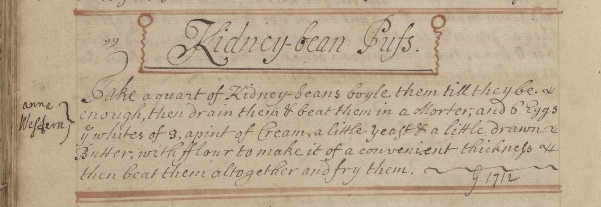 99
Kidney-bean Pufs.
Take a quart of Kidney-beans boyle them till they be
enough, then drain them & beat them in a Morter, and 6 Eggs
yͤ whites of 3, a pint of Cream, a little yeast & a little drawn
Butter, with fflour to make it of a convenient thickness &
then beat them altogether and fry them.
anne
Western
1712